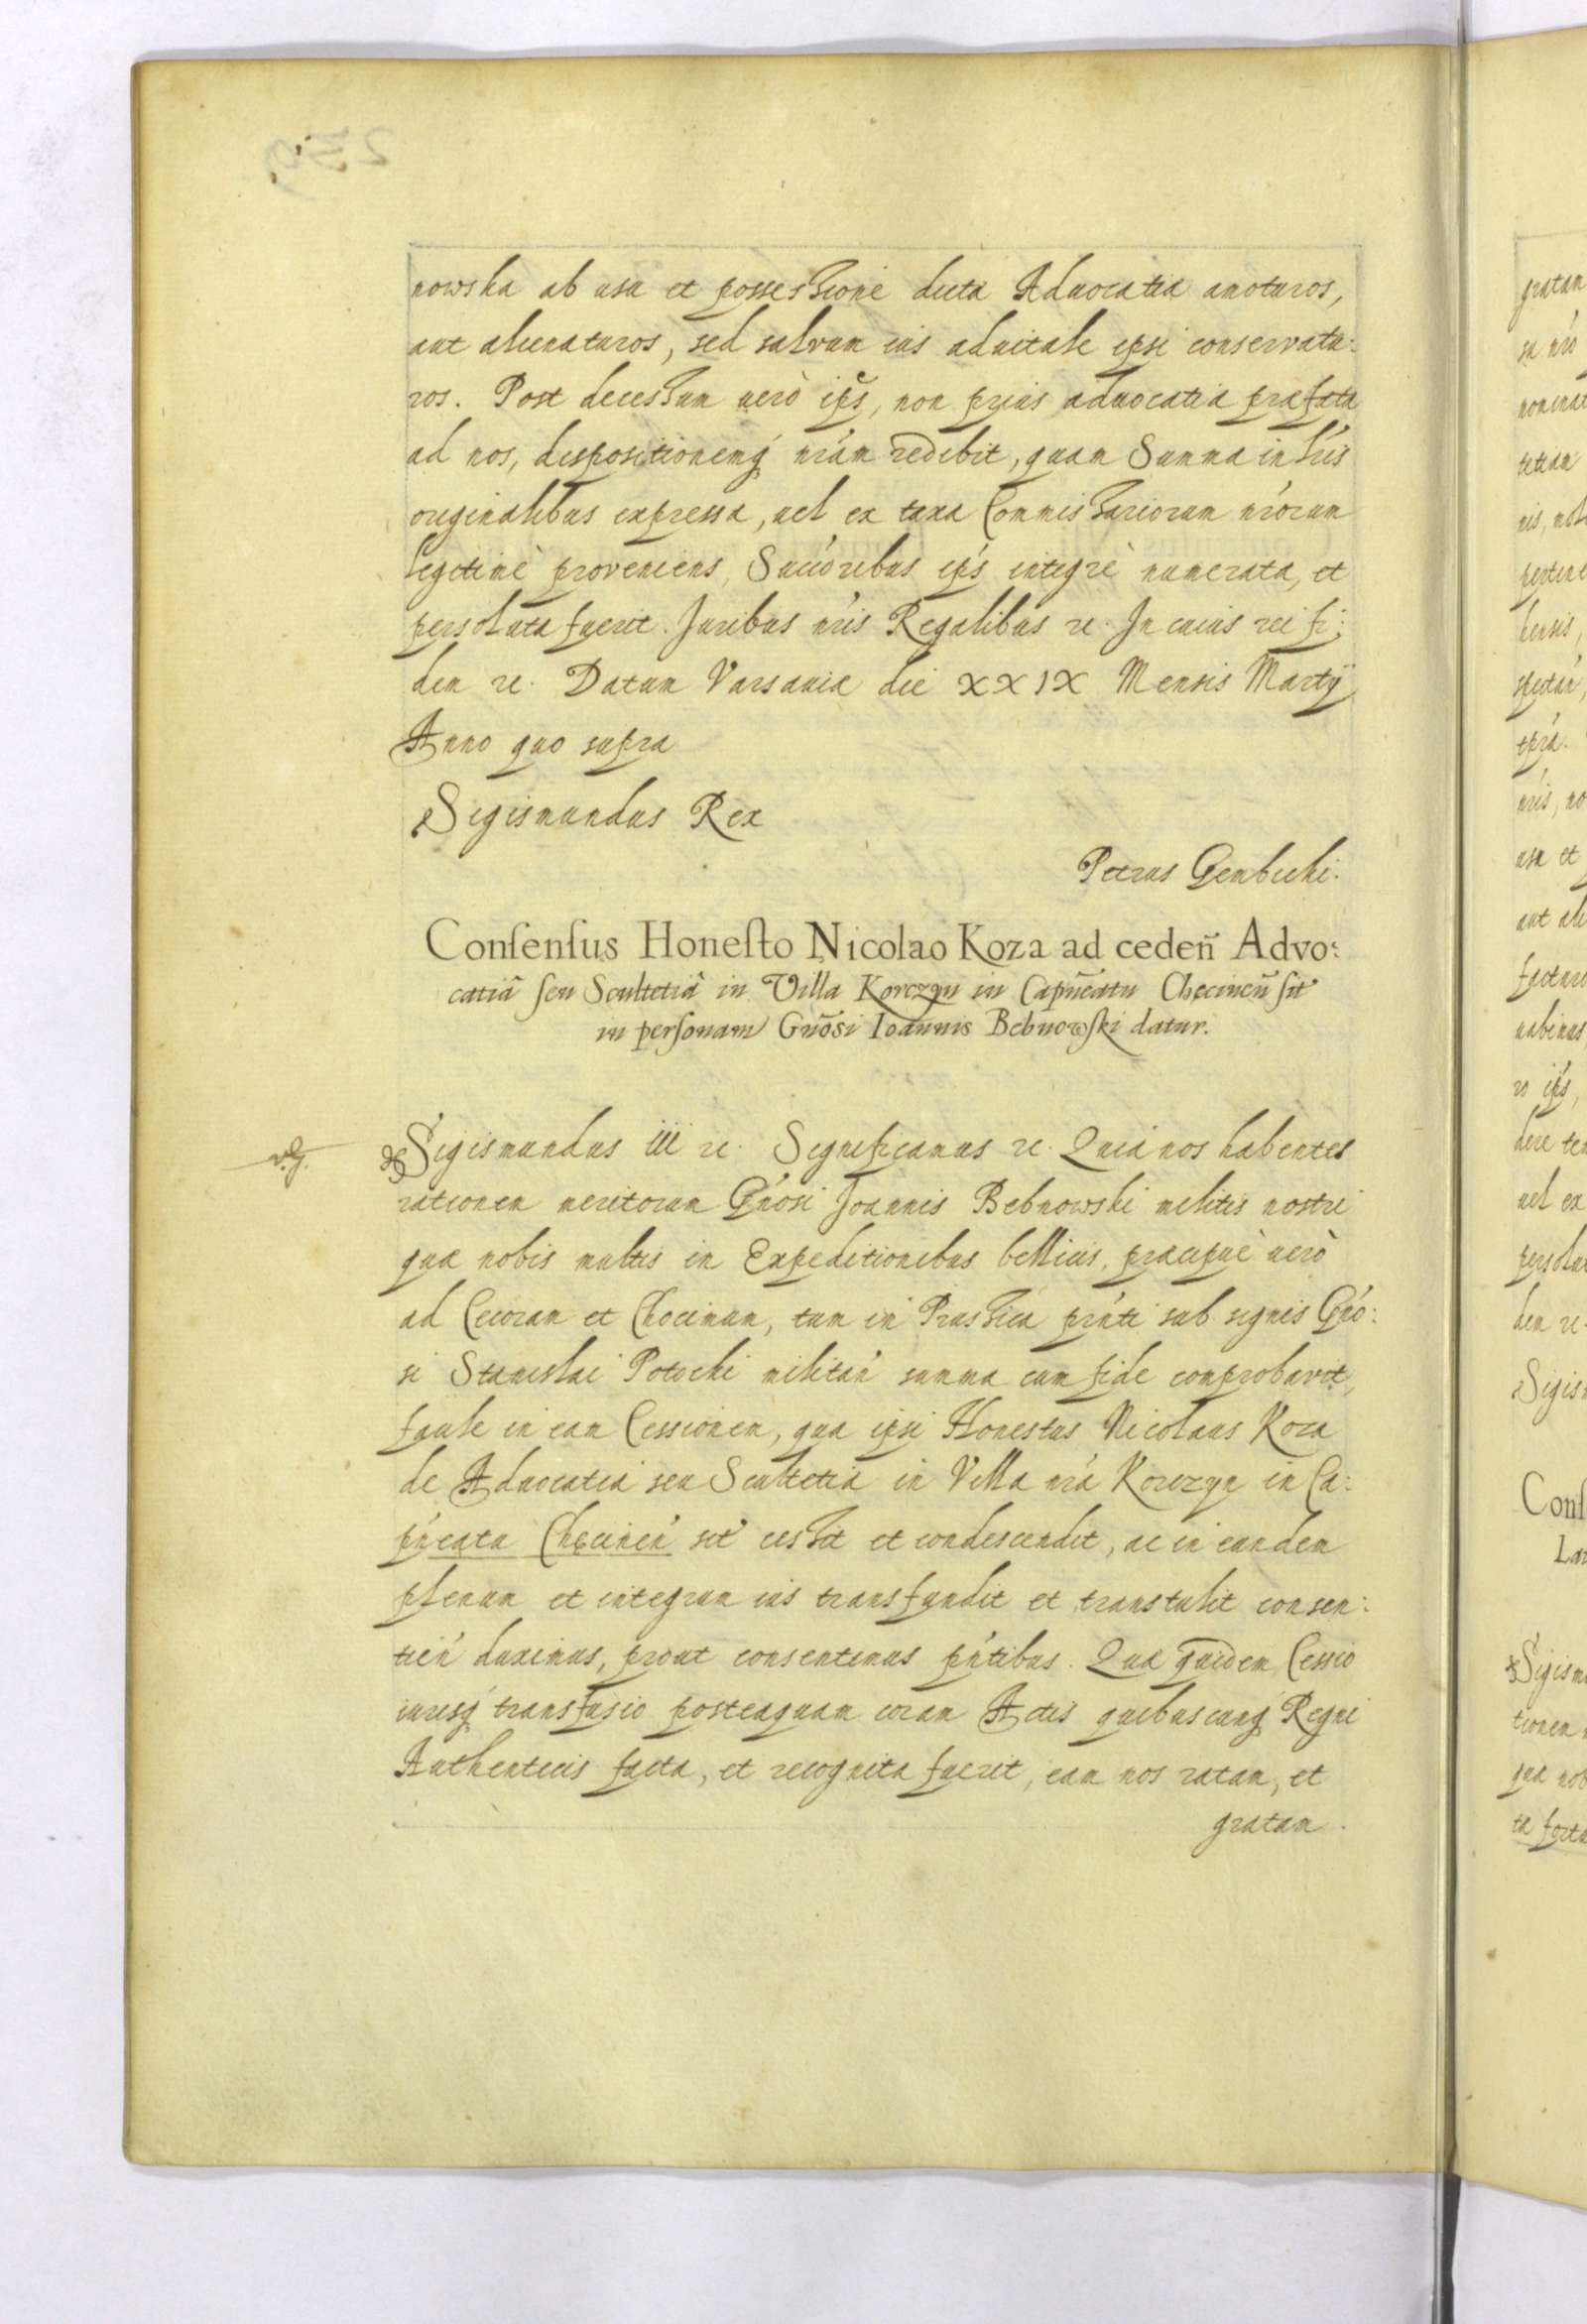 nowska ab usu et possessione dicta Aduocatia amoturos,
aut alienaturos, sed salvum ius aduitale ipsi conservatu:
ros. Post decessum uerò ips̃, non prius aduocatia præfata
ad nos, dispositionemq́ nrám redibit, quam Summa in lris
originalibus expressa, uel ex taxa Commissariorum nrórum
legitimè proveniens, Succóribus ipś integrè numerata, et
persoluta fuerit. Juribus nrís Regalibus etc. In cuius rei fi:
dem etc. Datum Varsauiæ die XXIX Mensis Martÿ
Anno quo supra
Sigismundus Rex
Petrus Gembicki.
Conſenſus Honeſto Nicolao Koza ad cedeñ Advo:
catiâ ſeu Scultetiâ in Villa Korczyn in Capñeatu Chęcineñ ſit
in perſonam Gñosi Ioannis Bebnowſki datur.
Sigismundus iii etc. Significamus etc. Quia nos habentes
rationem meritorum Gńosi Joannis Bebnowski militis nostri
quæ nobis multis in Expeditionibus bellicis, præcipuè uerò
ad Cecoram et Chocimum, tum in Prussia prńti sub signis Gńo:
si Stanislai Potocki militań summa cum fide comprobavit,
facile in eam Cessionem, qua ipsi Honestus Nicolaus Koza
de Aduocatia seu Scultetia in Villa nrá Korczyn in Ca:
pńeatu Chęcineń sit cessit et condescendit, ac in eundem
plenum et integrum ius transfundit et transtulit consen:
tień duximus, prout consentimus pńtibus. Quæ quidem Cessio
iurisq́ transfusio posteaquam coram Actis quibuscunq́ Regni
Authenticis facta, et recognita fuerit, eam nos ratam, et
gratam